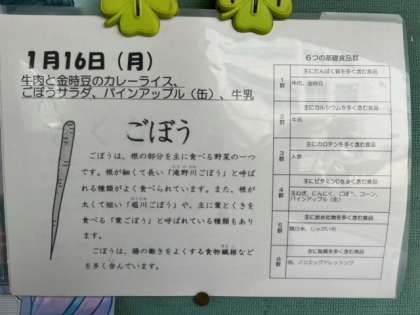 1月16日（月）
牛肉と金時豆のカレーライス、
ごぼうサラダ、パインアップル（缶）、牛乳
ごぼう
ごぼうは、根の部分を主に食べる野菜の一つ
です。根が細くて長い「滝野川ごぼう」と呼ば
れる種類がよく食べられています。また、根が
太くて短い「堀川ごぼう」や、主に葉とくきを
食べる「葉ごぼう」と呼ばれている種類もあり
ます。
ごぼうは、腸の働きをよくする食物繊維など
を多く含んでいます。
6つの基礎食品群
1群
主にたんぱく質を多く含む食品
牛肉、金時豆
2群
主にカルシウムを多く含む食品
牛乳
3群
主にカロテンを多く含む食品
人参
4群
主にビタミンCを多く含む食品
玉ねぎ、にんにく、ごぼう、コーン、
パインアップル（缶）
5群
主に炭水化物を多く含む食品
精白米、じゃがいも
6群
主に脂質を多く含む食品
油、ノンエッグドレッシング